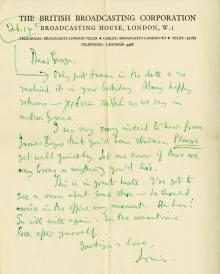 THE BRITISH BROADCASTING CORPORATION
BROADCASTING HOUSE, LONDON, W.1
TELEGRAMS: BROADCASTS LONDON TELEX • CABLES: BROADCASTS LONDON-W1 • TELEX: 22182
TELEPHONE: LANGHAM 4468
Feb. 14
Dear George,
Only just taken in the date & so
realised it is your birthday. Many happy
returns — ΧΡΟΝΙΑ ΠΟΛΛΑ as we say in
modern Greece.
I was very sorry indeed to hear from
James that you'd been stricken. Please
get well quickly. Let me know if there are
any books or anything you'd like.
This is in great haste. I've got to
see a man about some — he should
arrive in the office any moment. He has!
So will write again. In the meantime
look after yourself.
Greetings & love,
Louis.